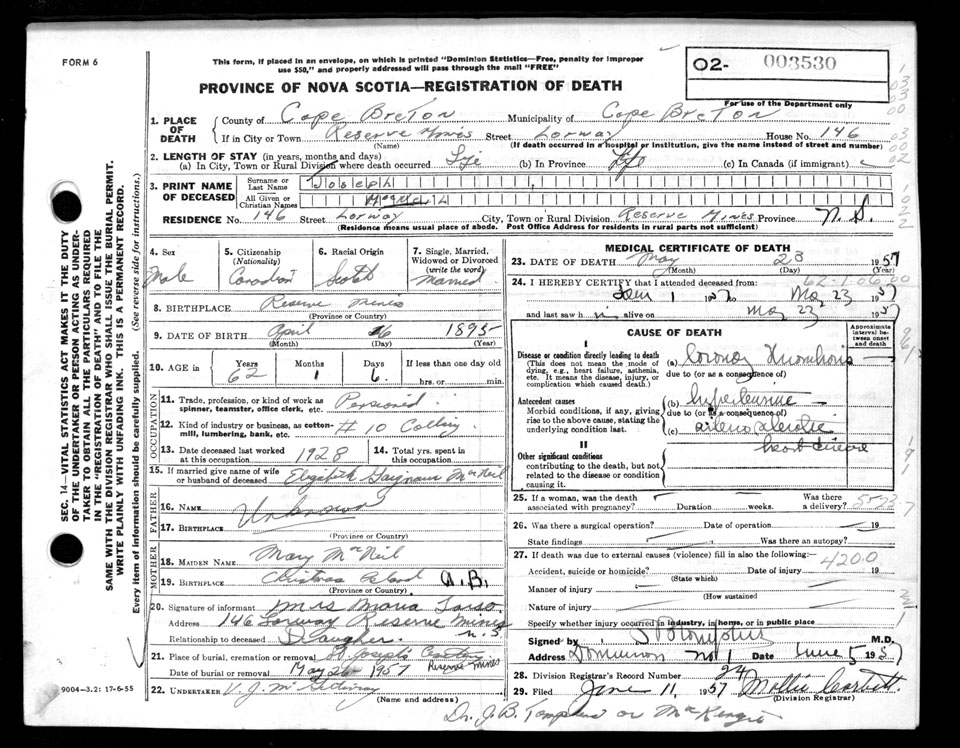 FORM 6
This form, if placed in an envelope, on which is printed "Dominion Statistics—Free, penalty for improper
use $50," and properly addressed will pass through the mail "FREE"
PROVINCE OF NOVA SCOTIA—REGISTRATION OF DEATH
02- 003530
For use of the Department only
1. PLACE OF DEATH
County of Cape Breton Municipality of Cape Breton
If in City or Town Reserve Mines Street Lorway House No. 146
(Name) (If death occurred in a hospital or institution, give the name instead of street and number)
2. LENGTH OF STAY (in years, months and days)
(a) In City, Town or Rural Division where death occurred Life (b) In Province Life (c) In Canada (if immigrant)
3. PRINT NAME OF DECEASED
Surname or Last Name Joseph
All Given or Christian Names
RESIDENCE No. 146 Street Lorway City, Town or Rural Division Reserve Mines Province N.S.
(Residence means usual place of abode. Post Office Address for residents in rural parts not sufficient)
4. Sex Male
5. Citizenship (Nationality) Canadian
6. Racial Origin Scotch
7. Single, Married, Widowed or Divorced (write the word) Married
8. BIRTHPLACE Reserve Mines
(Province or Country)
9. DATE OF BIRTH April 1895
(Month) (Day) (Year)
10. AGE in Years 62 Months 1 Days 6 If less than one day old
hrs. or min.
OCCUPATION
11. Trade, profession, or kind of work as spinner, teamster, office clerk, etc. Pensioned
12. Kind of industry or business, as cotton-mill, lumbering, bank, etc. #10
13. Date deceased last worked at this occupation 1928
14. Total yrs. spent in this occupation
15. If married give name of wife or husband of deceased Elizabeth McNeil
FATHER
16. NAME Unknown
17. BIRTHPLACE
(Province or Country)
MOTHER
18. MAIDEN NAME Mary McNeil
19. BIRTHPLACE Christmas Island
(Province or Country)
20. Signature of informant Mrs Maria
Address 146 Lorway Reserve Mines N.S.
Relationship to deceased Daughter
21. Place of burial, cremation or removal St. Joseph's Reserve Mines
Date of burial or removal May 26 1957
22. UNDERTAKER V. J.
(Name and address)
9004—3.2: 17-6-55
MEDICAL CERTIFICATE OF DEATH
23. DATE OF DEATH May 23 1957
(Month) (Day) (Year)
24. I HEREBY CERTIFY that I attended deceased from:
May 23 1957
and last saw h alive on May 23 1957
CAUSE OF DEATH
Approximate interval between onset and death
I
Disease or condition directly leading to death (a)
(This does not mean the mode of dying, e.g., heart failure, asthenia, etc. It means the disease, injury, or complication which caused death.)
due to (or as a consequence of)
Antecedent causes (b)
Morbid conditions, if any, giving rise to the above cause, stating the underlying condition last.
due to (or as a consequence of)
(c)
II
Other significant conditions contributing to the death, but not related to the disease or condition causing it.
25. If a woman, was the death associated with pregnancy? Duration weeks. Was there a delivery?
26. Was there a surgical operation? Date of operation 19
State findings Was there an autopsy?
27. If death was due to external causes (violence) fill in also the following:—
4200
Accident, suicide or homicide? Date of injury 19
(State which)
Manner of injury
(How sustained
Nature of injury
Specify whether injury occurred in industry, in home, or in public place
Signed by M.D.
Address Dominion No 1 Date June 5 1957
28. Division Registrar's Record Number 24
29. Filed June 11, 1957 Mollie
(Division Registrar)
Dr. J. B. Tompkins or McKenzie
SEC. 14—VITAL STATISTICS ACT MAKES IT THE DUTY
OF THE UNDERTAKER OR PERSON ACTING AS UNDER-
TAKER TO OBTAIN ALL THE PARTICULARS REQUIRED
IN THE "REGISTRATION OF DEATH" AND TO FILE THE
SAME WITH THE DIVISION REGISTRAR WHO SHALL ISSUE THE BURIAL PERMIT.
WRITE PLAINLY WITH UNFADING INK. THIS IS A PERMANENT RECORD.
Every item of information should be carefully supplied. (See reverse side for instructions.)